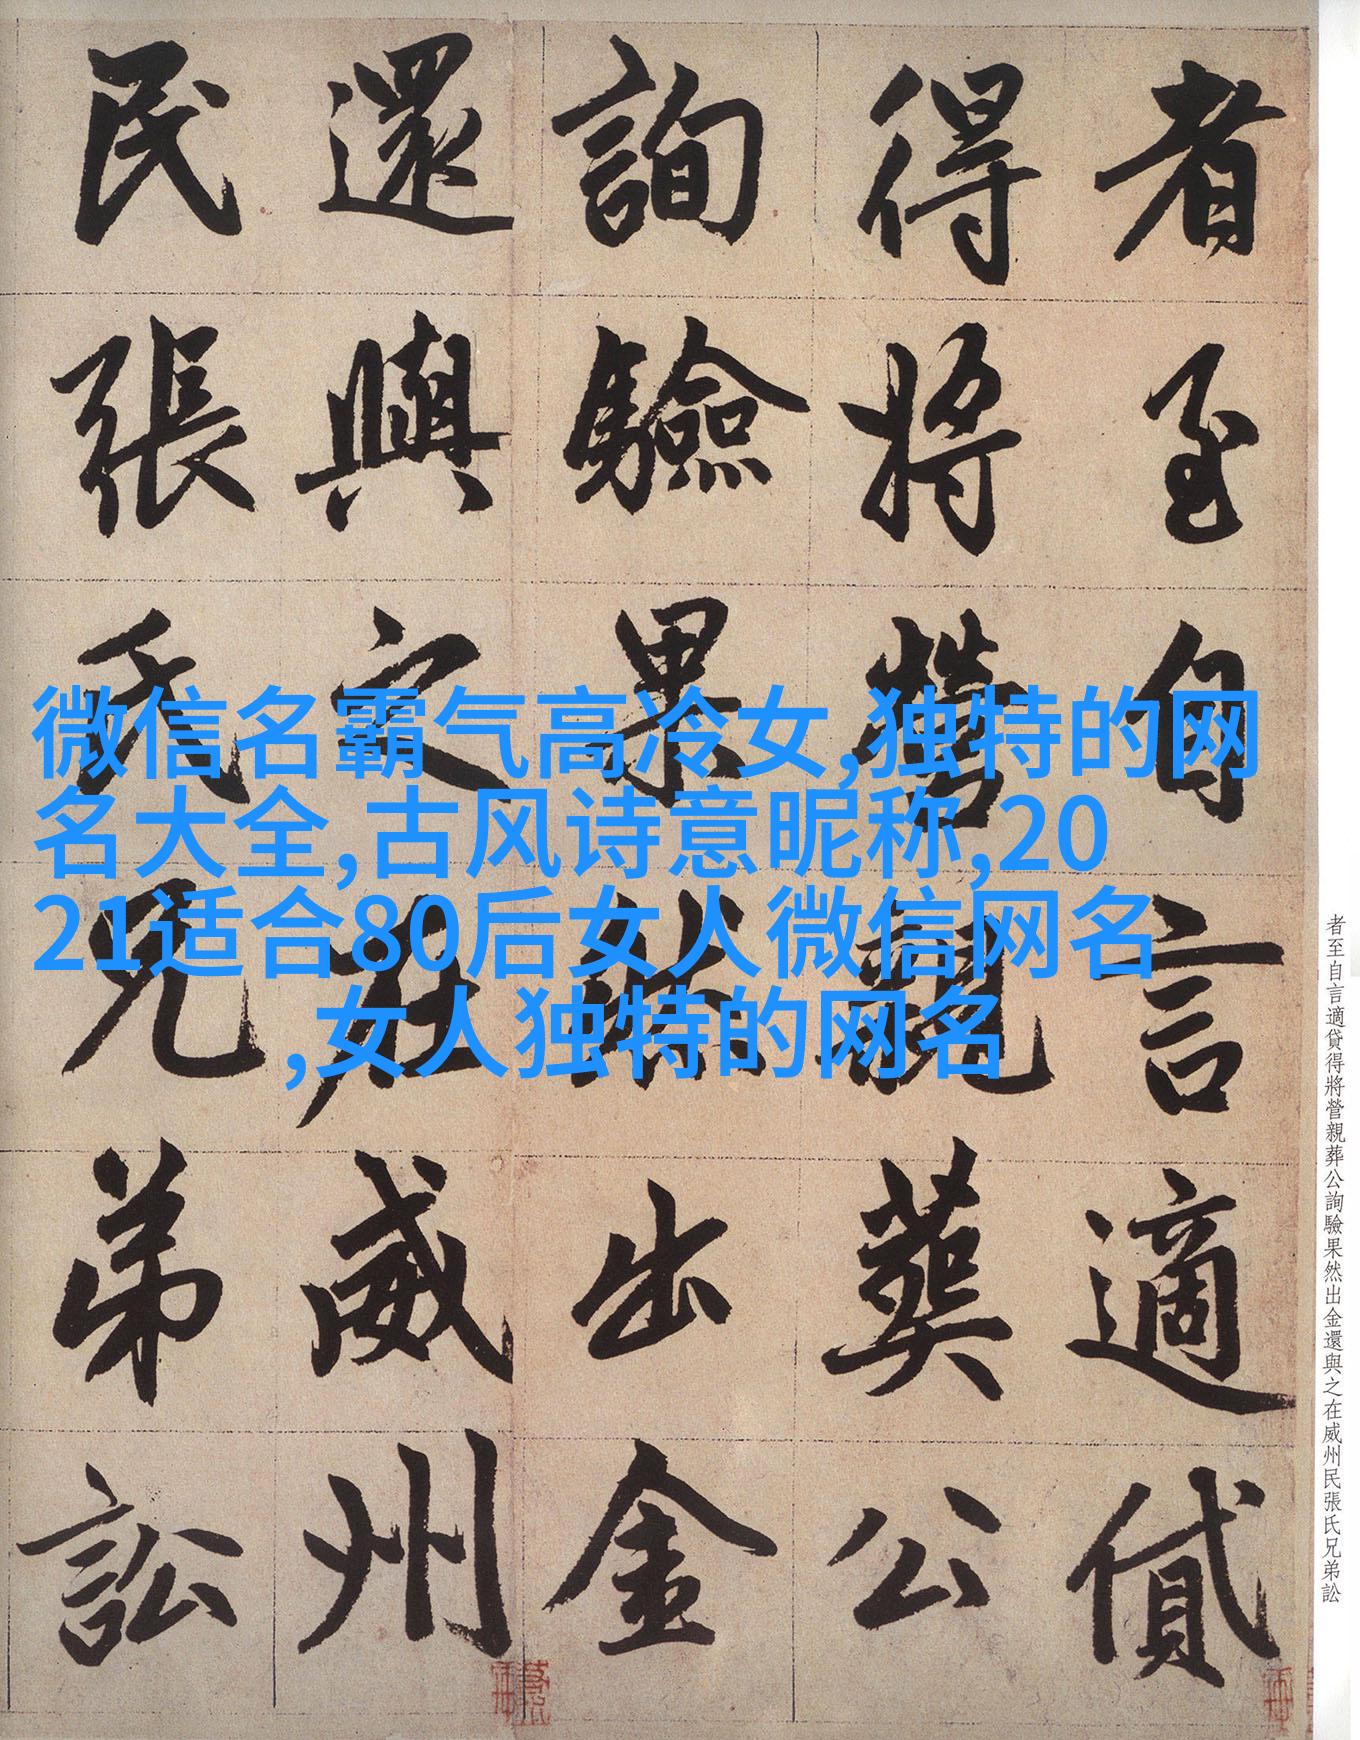 者至自言適貸
得將營親葬公
詢驗果然出金
還與之在威州
民張氏兄弟訟
微信名霸气高冷女,独特的网
名大全,古风诗意昵称,20
21适合80后女人微信网名
,女人独特的网名
者至自言適貸得將營親葬公詢驗果然出金還與之在威州民張氏兄弟訟